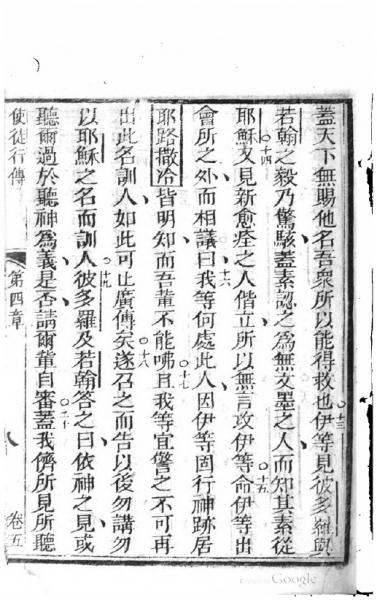 蓋天下無賜他名吾衆所以能得救也○十三伊等見彼多羅與
若翰之毅乃驚駭蓋素認之爲無文墨之人而知其素從
耶穌○十四又見新愈痊之人偕立所以無言攻伊等○十五命伊等出
會所之外而相議○十六曰我等何處此人因伊等固行神跡居
耶路撒冷皆明知而吾輩不能咈○十七且我等宜警之不可再
出此名訓人如此可止廣傳矣○十八遂召之而告以後勿講勿
以耶穌之名而訓人○十九彼多羅及若翰答之曰依神之見或
聽爾過於聽神爲義是否請爾輩自審○二十蓋我儕所見所聽
使徒行傳
第四章
八
卷五
Google